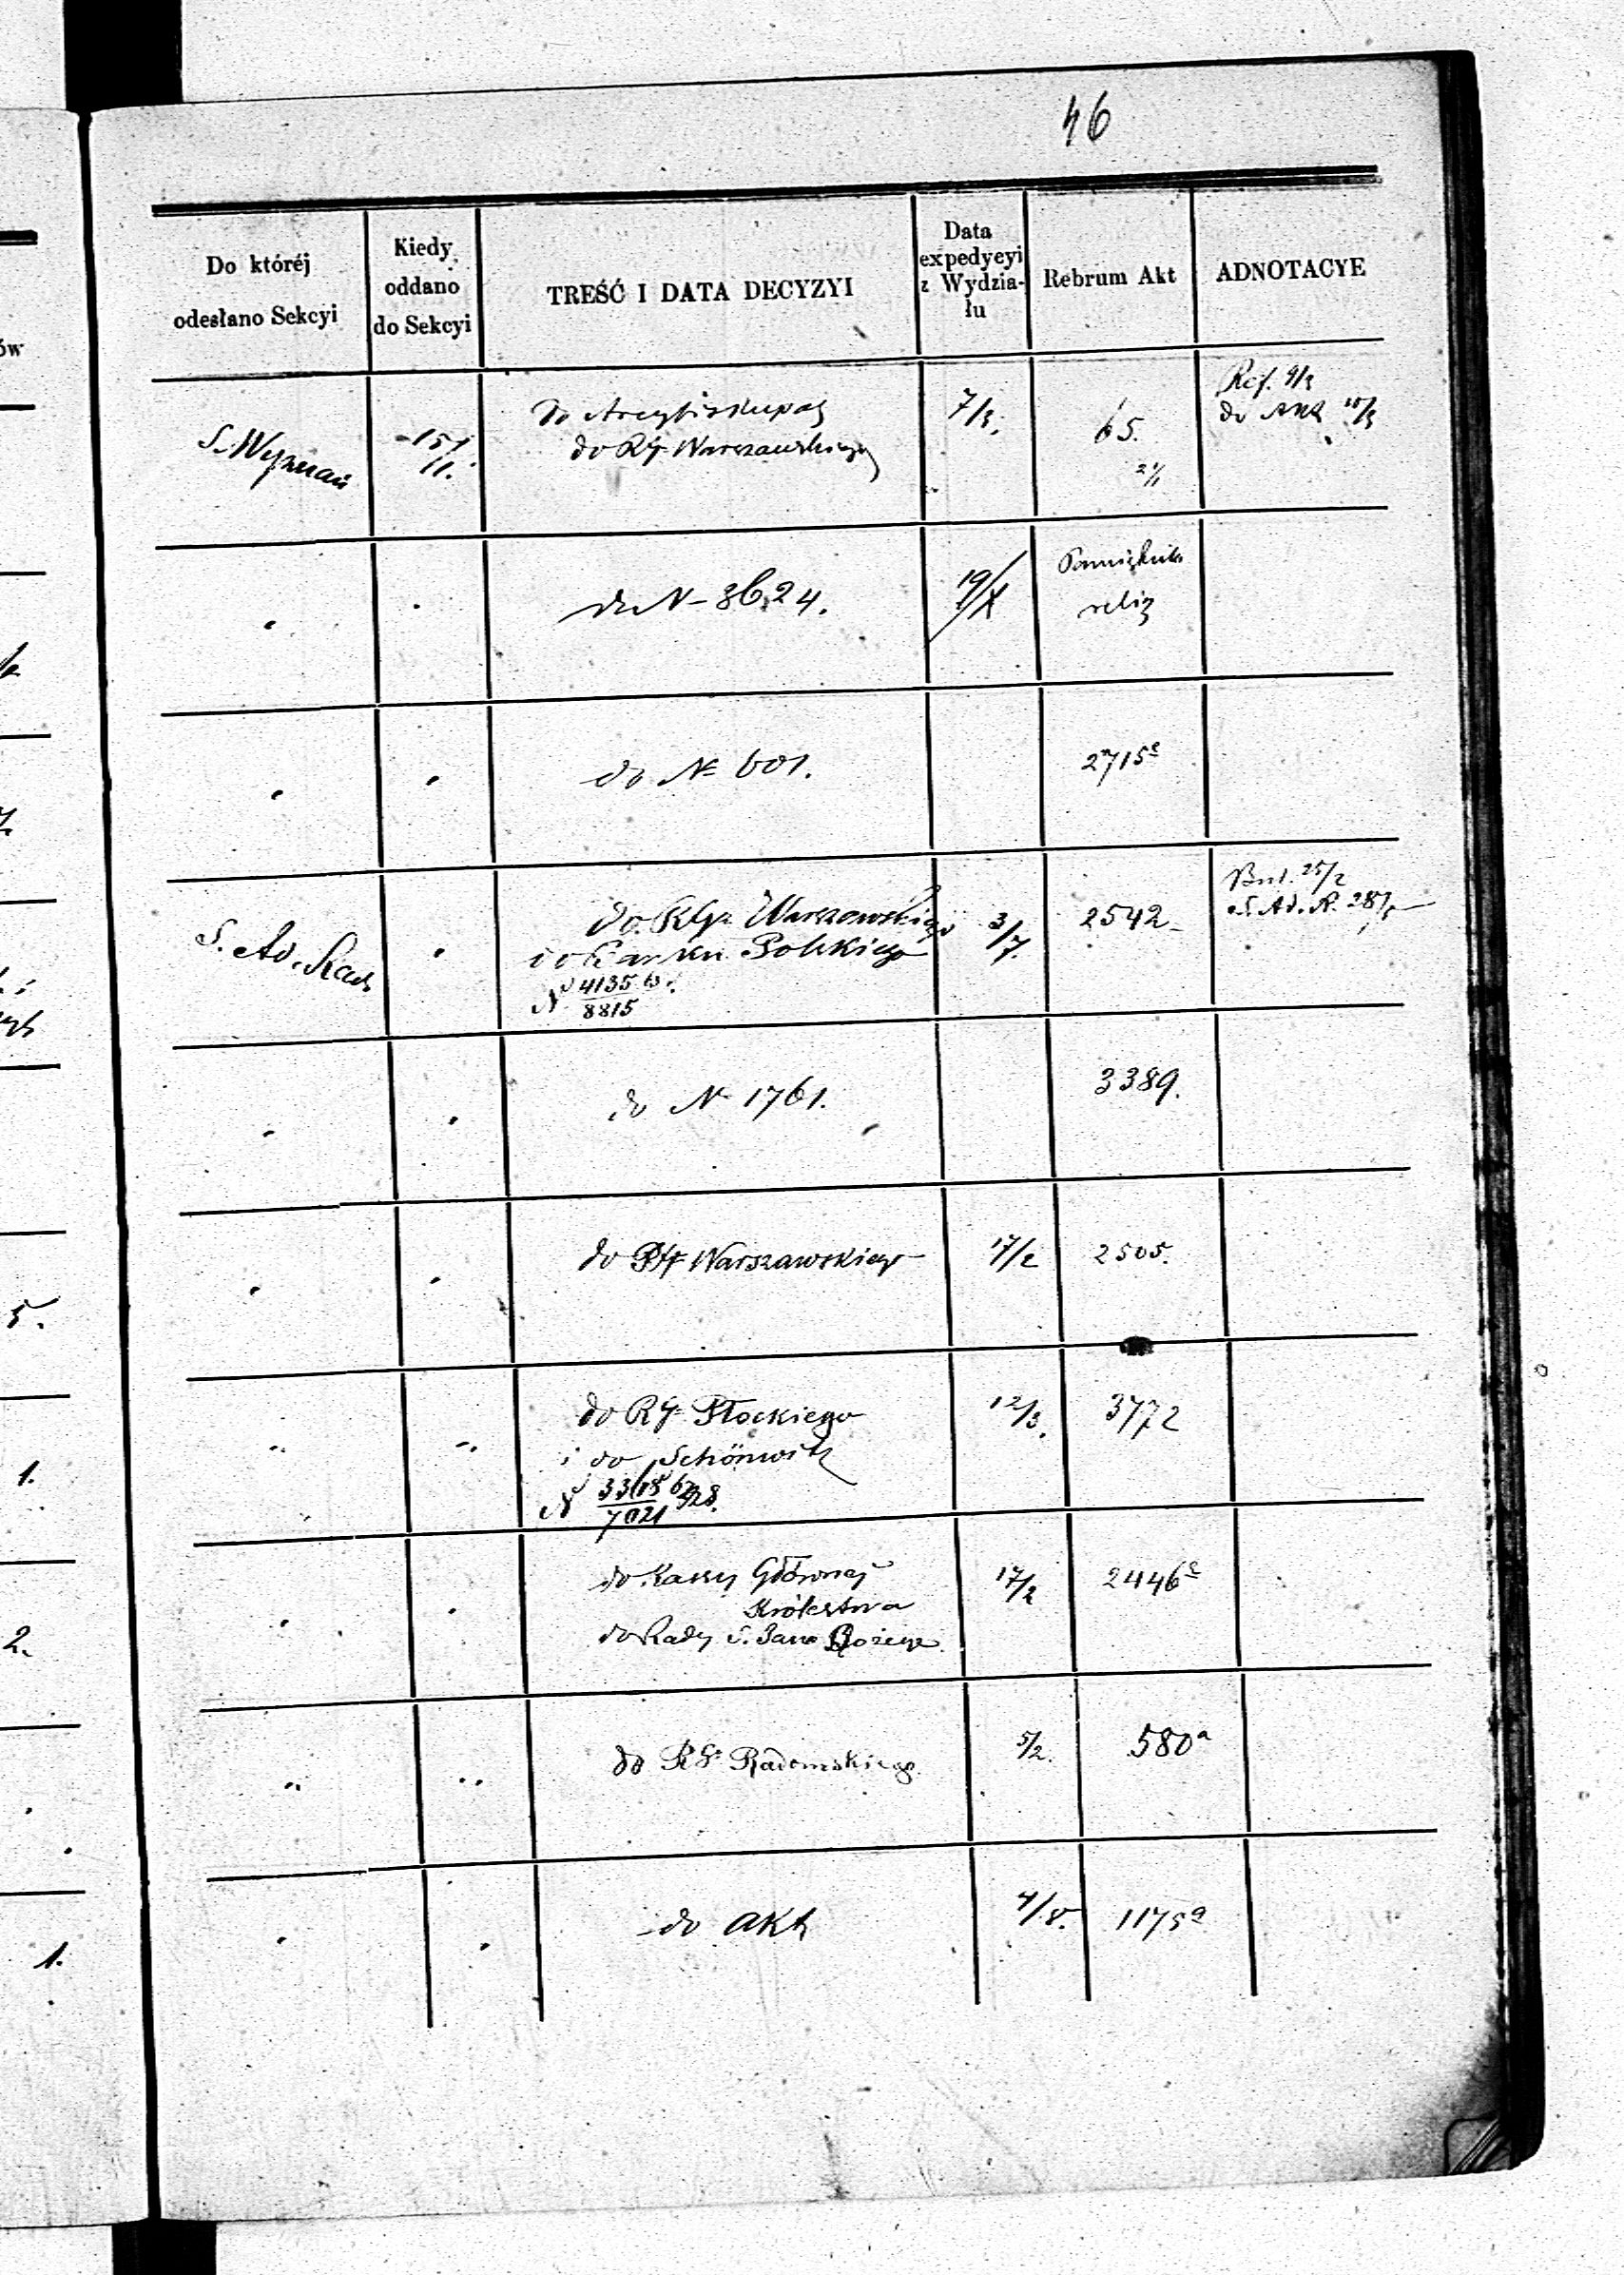 46
Do któréj odesłano Sekcyi
Kiedy oddano do Sekcyi
TREŚĆ I DATA DECYZYI
Data expedycyi z Wydziału
Rebrum Akt
ADNOTACYE
S. Wyznań
15/11.
do Arcybiskupa
do RG Warszawskiego
7/3.
65.
2/1
Ref. 9/3
do Akt 10/3
do N 3624.
19/X
Pamiętnik
relig
do N 601.
2715e
S. Ad.
do RGu Warszawskiego
do Banku Polskiego
N 4135
8815
3/7.
2542
25/2
S. Ad. R.
do N 1761.
3389.
do RG Warszawskiego
17/2
2505.
do RG Płockiego
i do Schönwitz
N
7021
12/3.
3772
do Kassy Głównej
Królestwa
do Rady S. Jana Bożego
17/2
2446c
do RG Radomskiego
5/2.
580a
do Akt
4/8.
1175a
ów
5.
1.
2.
1.